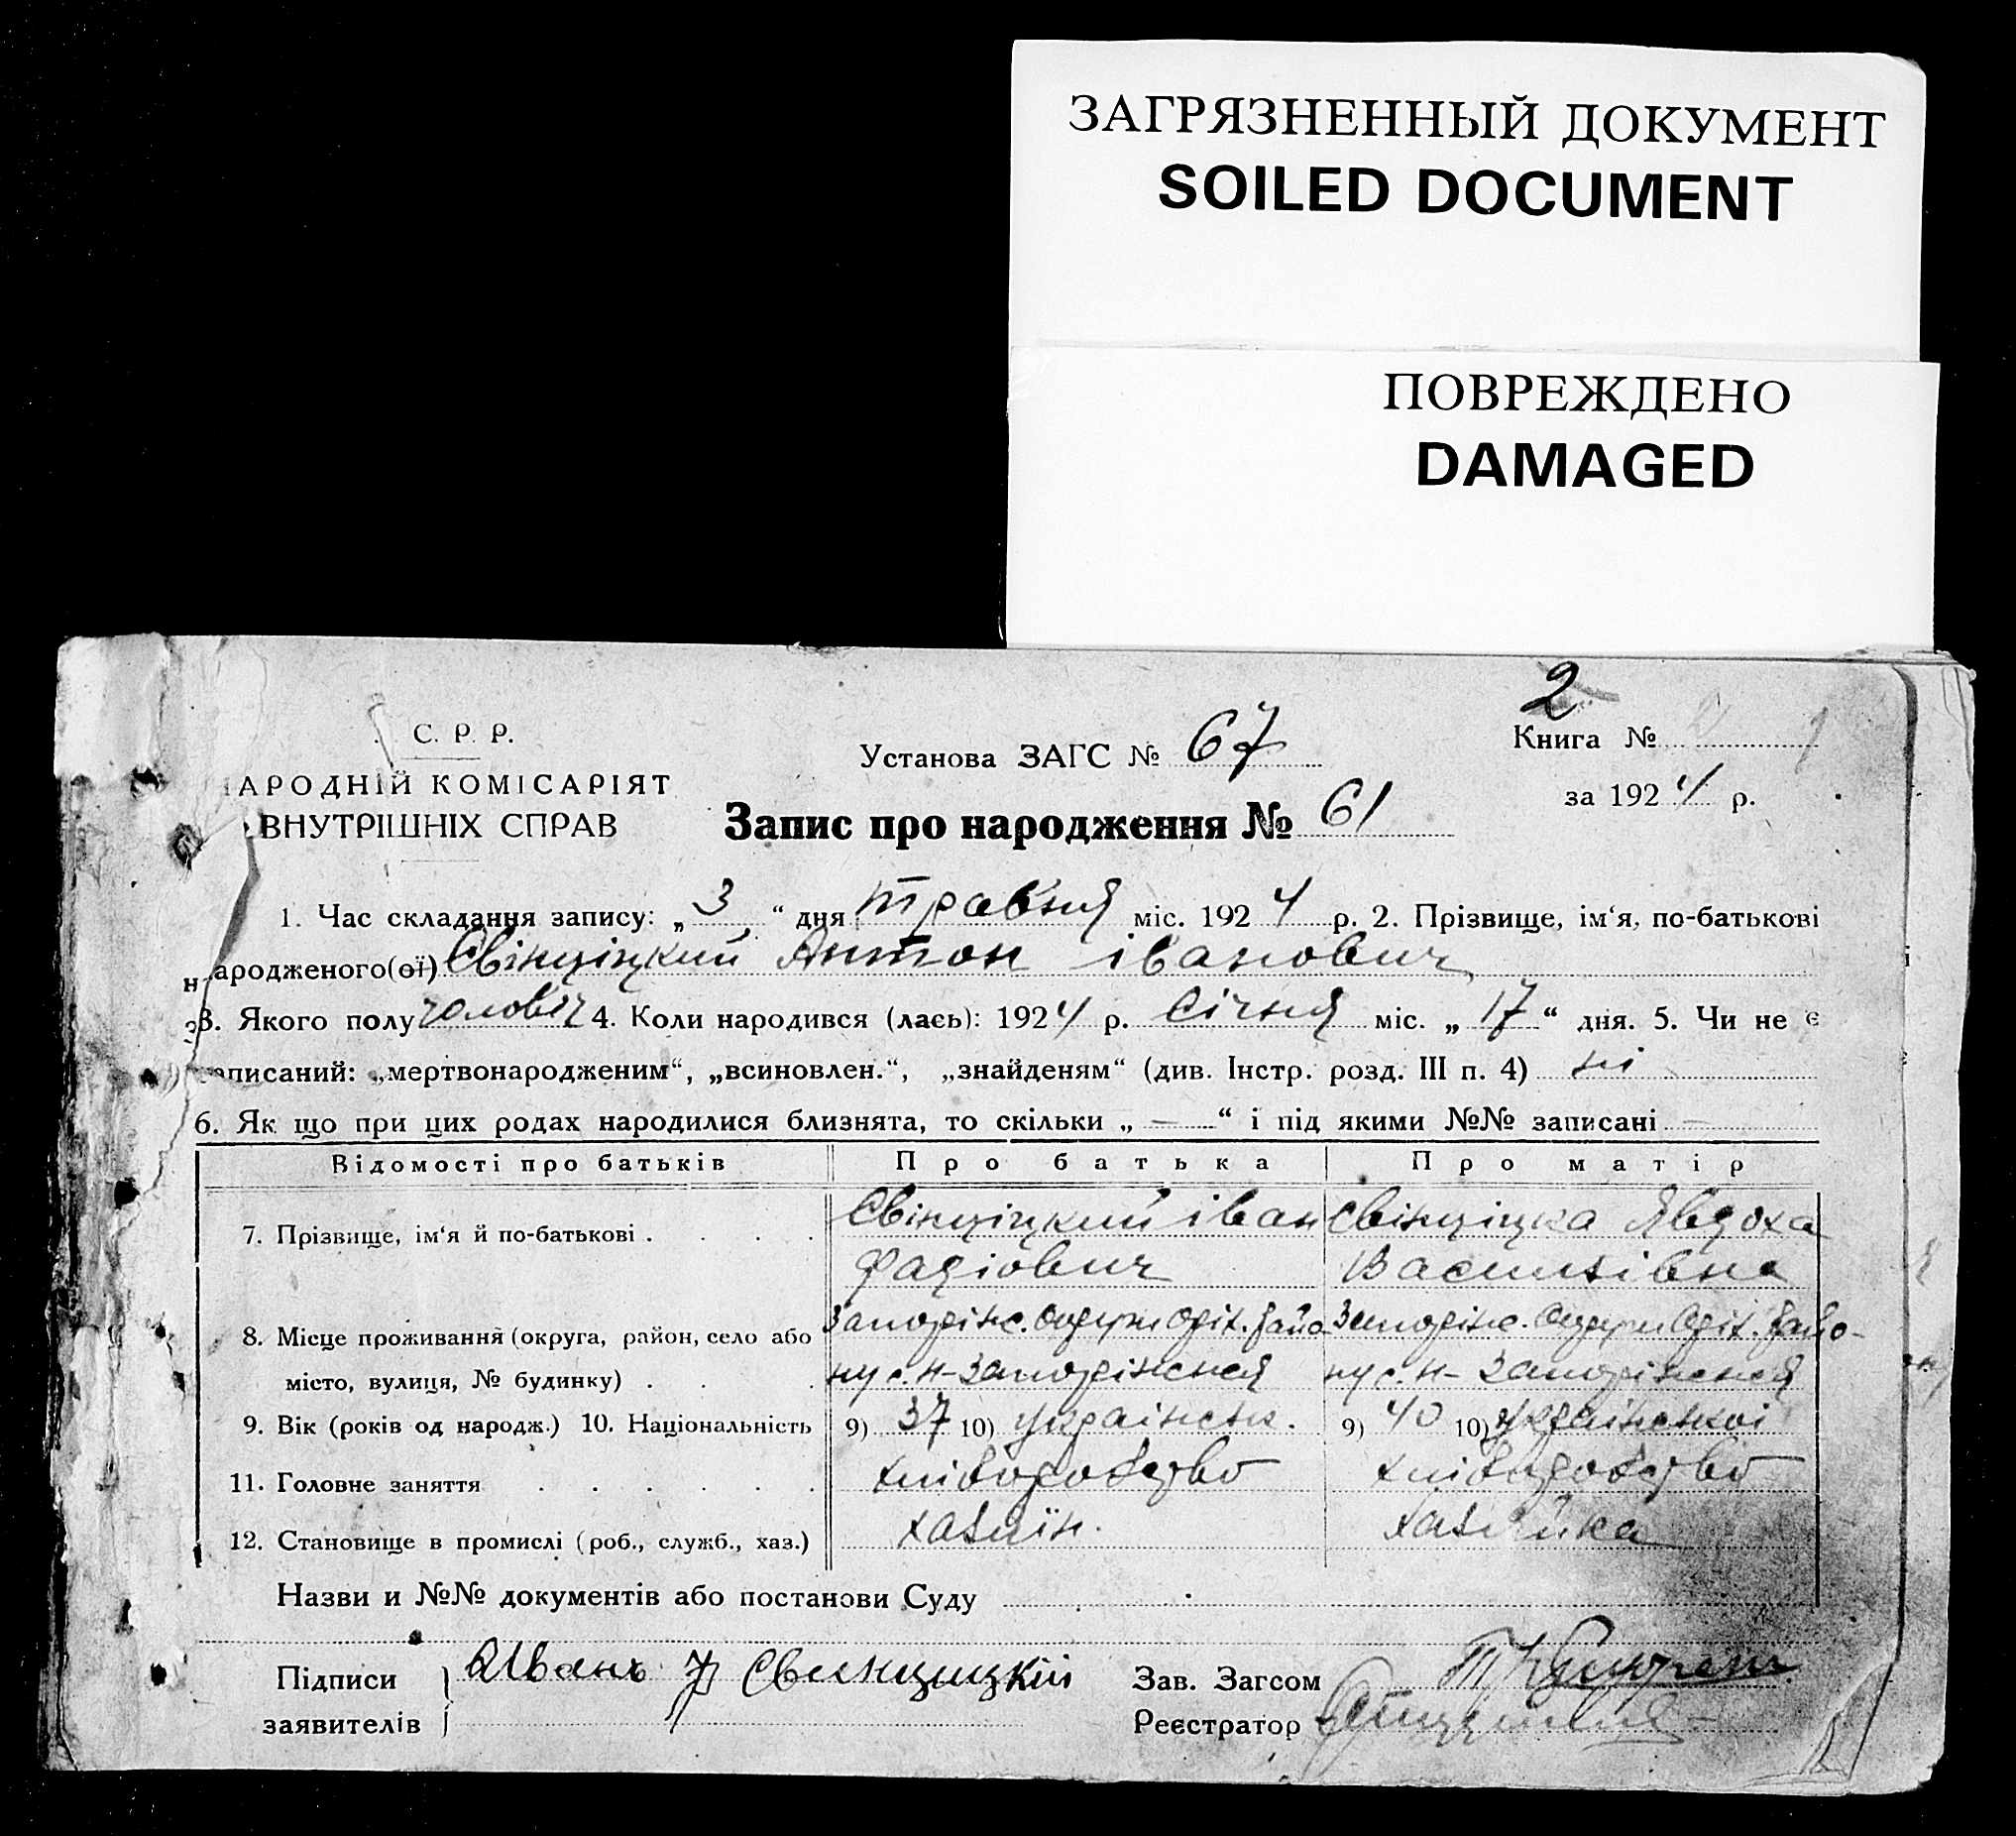 ЗАГРЯЗНЕННЫЙ ДОКУМЕНТ
SOILED DOCUMENT
ПОВРЕЖДЕНО
DAMAGED
2
С. Р. Р.
АРОДНІЙ КОМІСАРІЯТ
ВНУТРІШНІХ СПРАВ
Установа ЗАГС № 67
Книга №
за 1924 р.
Запис про народження № 61
1. Час складання запису: „3“ дня травня міс. 1924 р. 2. Прізвище, ім‘я, по-батькові
народженого(ої) Свінціцкий Антон Іванович
3. Якого полу чоловіч 4. Коли народився (лаєь): 1924 р. Січня міс. „17“ дня. 5. Чи не є
записаний: „мертвонародженим“, „всиновлен.“, „знайденям“ (див. Інстр. розд. III п. 4) ні
6. Як що при цих родах народилися близнята, то скільки „—“ і під якими №№ записані —
Відомості про батьків Про батька Про матір
7. Прізвище, ім‘я й по-батькові . . . . Свінціцкий Іван Свінціцка Явдоха
Фадіович Василівна
8. Місце проживання (округа, район, село або Запоріж. округи Оріх. райо- Запоріж. округи Оріх. райо-
місто, вулиця, № будинку) . . . ну с. Н-Запоріжжя ну с. Н-Запоріжжя
9. Вік (років од народж.) 10. Національність 9) 37 10) українськ. 9) 40 10) української
11. Головне заняття . . . . . . хліборобство хліборобство
12. Становище в промислі (роб., служб., хаз.) хазяїн. хазяйка
Назви и №№ документів або постанови Суду
Підписи Иванъ Ф Свинцицкій Зав. Загсом
заявителів Реєстратор